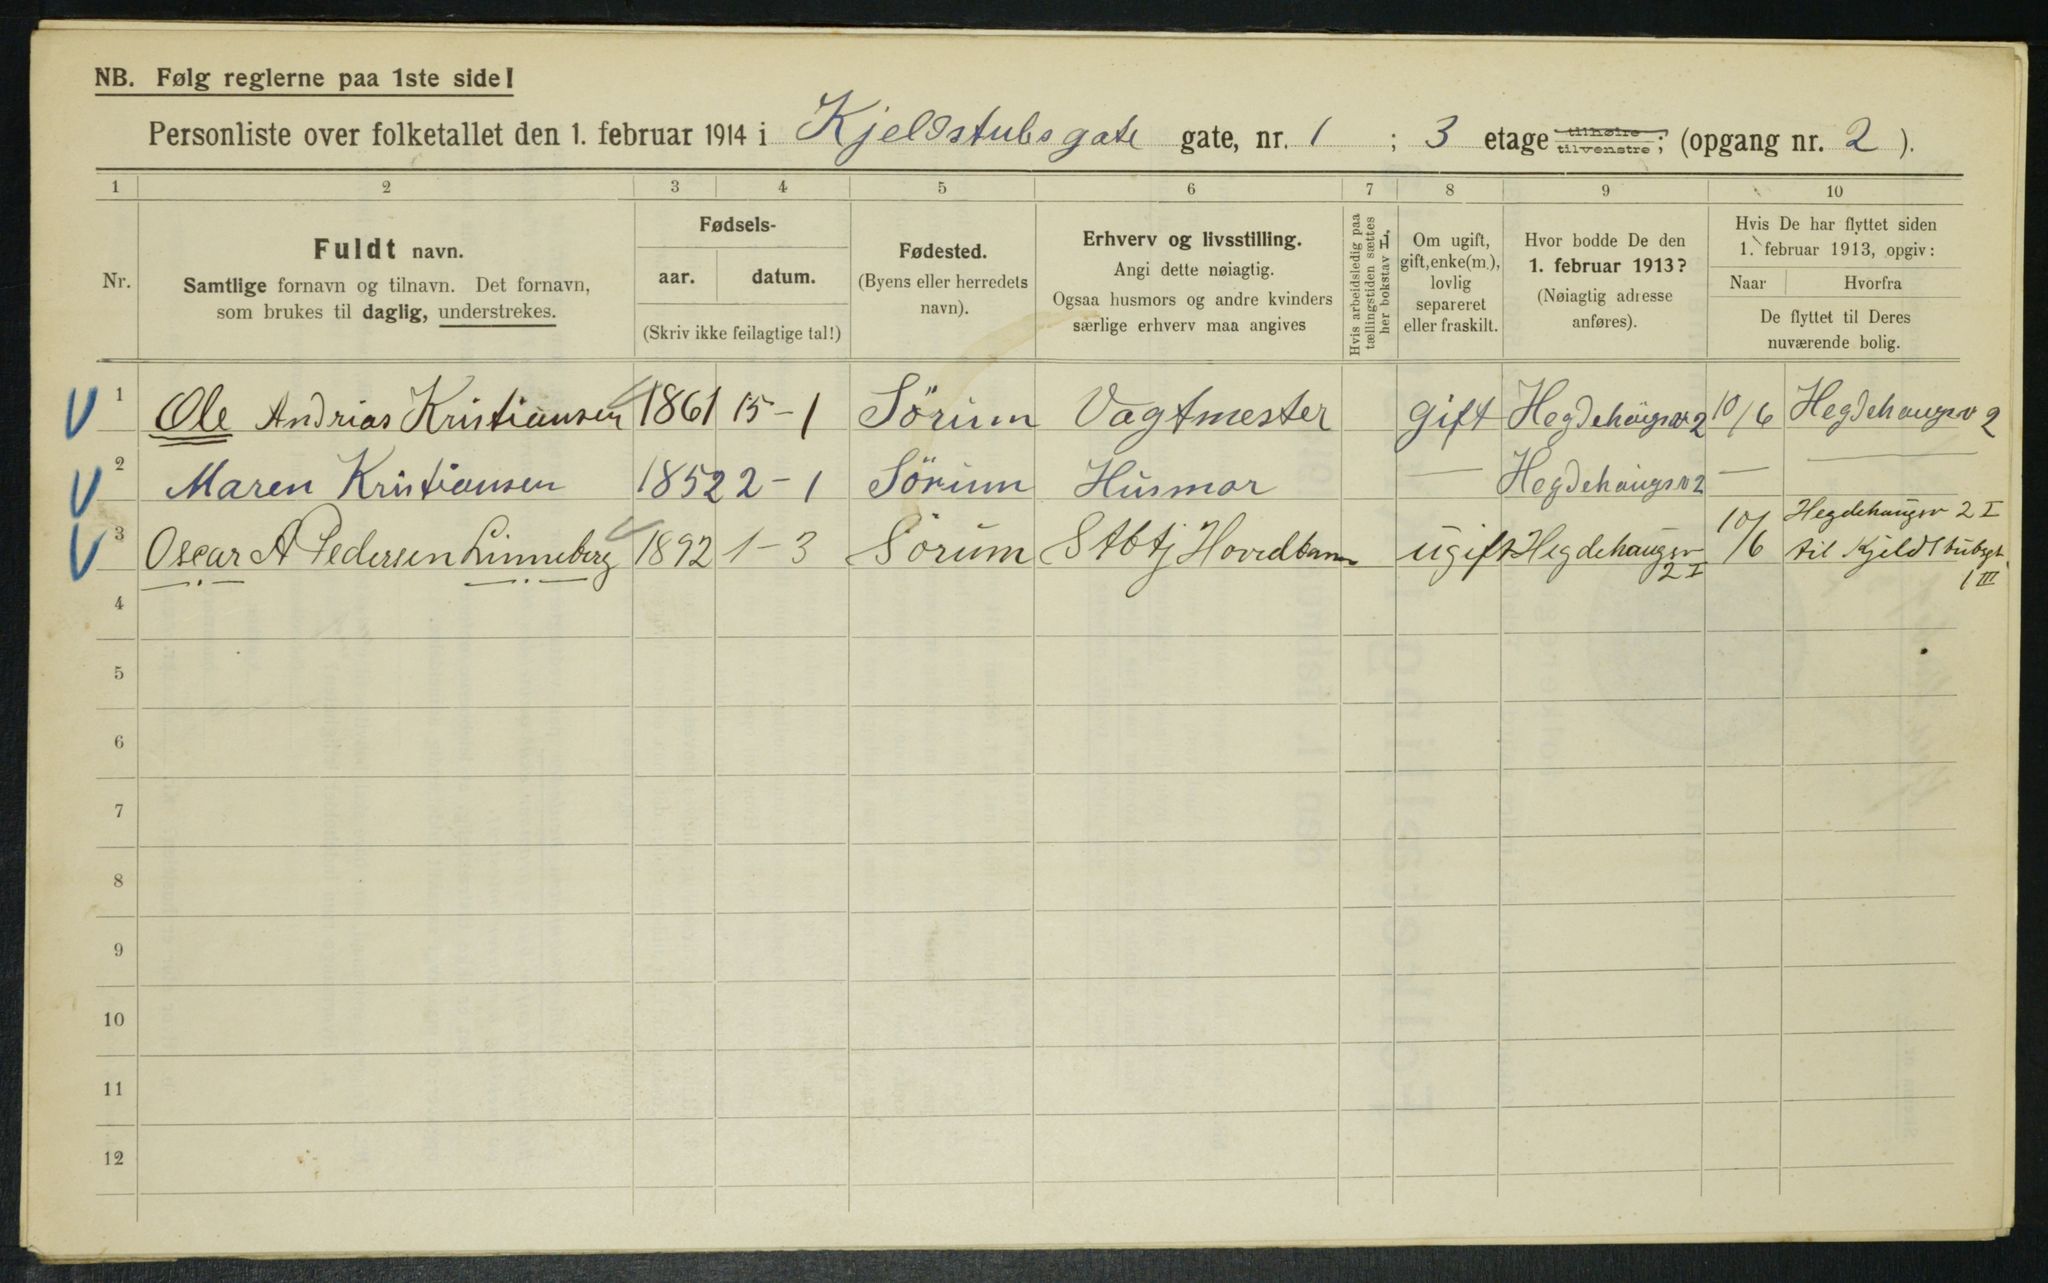 NB. Følg reglerne paa 1ste side!
Personliste over folketallet den 1. februar 1914 i Kjeldstubsgate gate, nr. 1 ; 3 etage tilhøire tilvenstre; (opgang nr. 2 ).
1 2 3 4 5 6 7 8 9 10
Nr.
Fuldt navn.
Samtlige fornavn og tilnavn. Det fornavn,
som brukes til daglig, understrekes.
Fødsels-
aar. datum.
(Skriv ikke feilagtige tal!)
Fødested.
(Byens eller herredets
navn).
Erhverv og livsstilling.
Angi dette nøiagtig.
Ogsaa husmors og andre kvinders
særlige erhverv maa angives
Hvis arbeidsledig paa
tællingstiden sættes
her bokstav L.
Om ugift,
gift, enke(m.),
lovlig
separeret
eller fraskilt.
Hvor bodde De den
1. februar 1913?
(Nøiagtig adresse
anføres).
Hvis De har flyttet siden
1. februar 1913, opgiv:
Naar Hvorfra
De flyttet til Deres
nuværende bolig.
1 Ole Andrias Kristiansen 1861 15-1 Sörum Vagtmester gift Hegdehaugsv 2 10/6 Hegdehaugsv 2
2 Maren Kristiansen 1852 2-1 Sörum Husmor — Hegdehaugsv 2 — —
3 Oscar A Pedersen Linneberg 1892 1-3 Sörum Stbtj Hovedban ugift Hegdehaugsv 2 I 10/6 Hegdehaugsv 2 I
til Kjeldstubgt
1 III
4
5
6
7
8
9
10
11
12